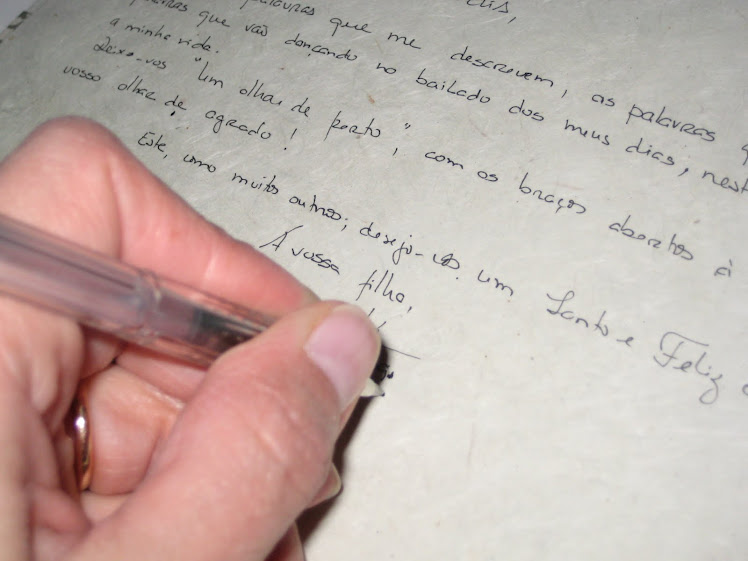 palavras que me descrevem, as palavras
que vão dançando no bailado dos meus dias, nest
a minha vida.
Deixo-vos "Um olhar de perto", com os braços abertos à
vosso olhar de agrado!
Este, como muitos outros; desejo-vos um Santo e Feliz
A vossa filha,